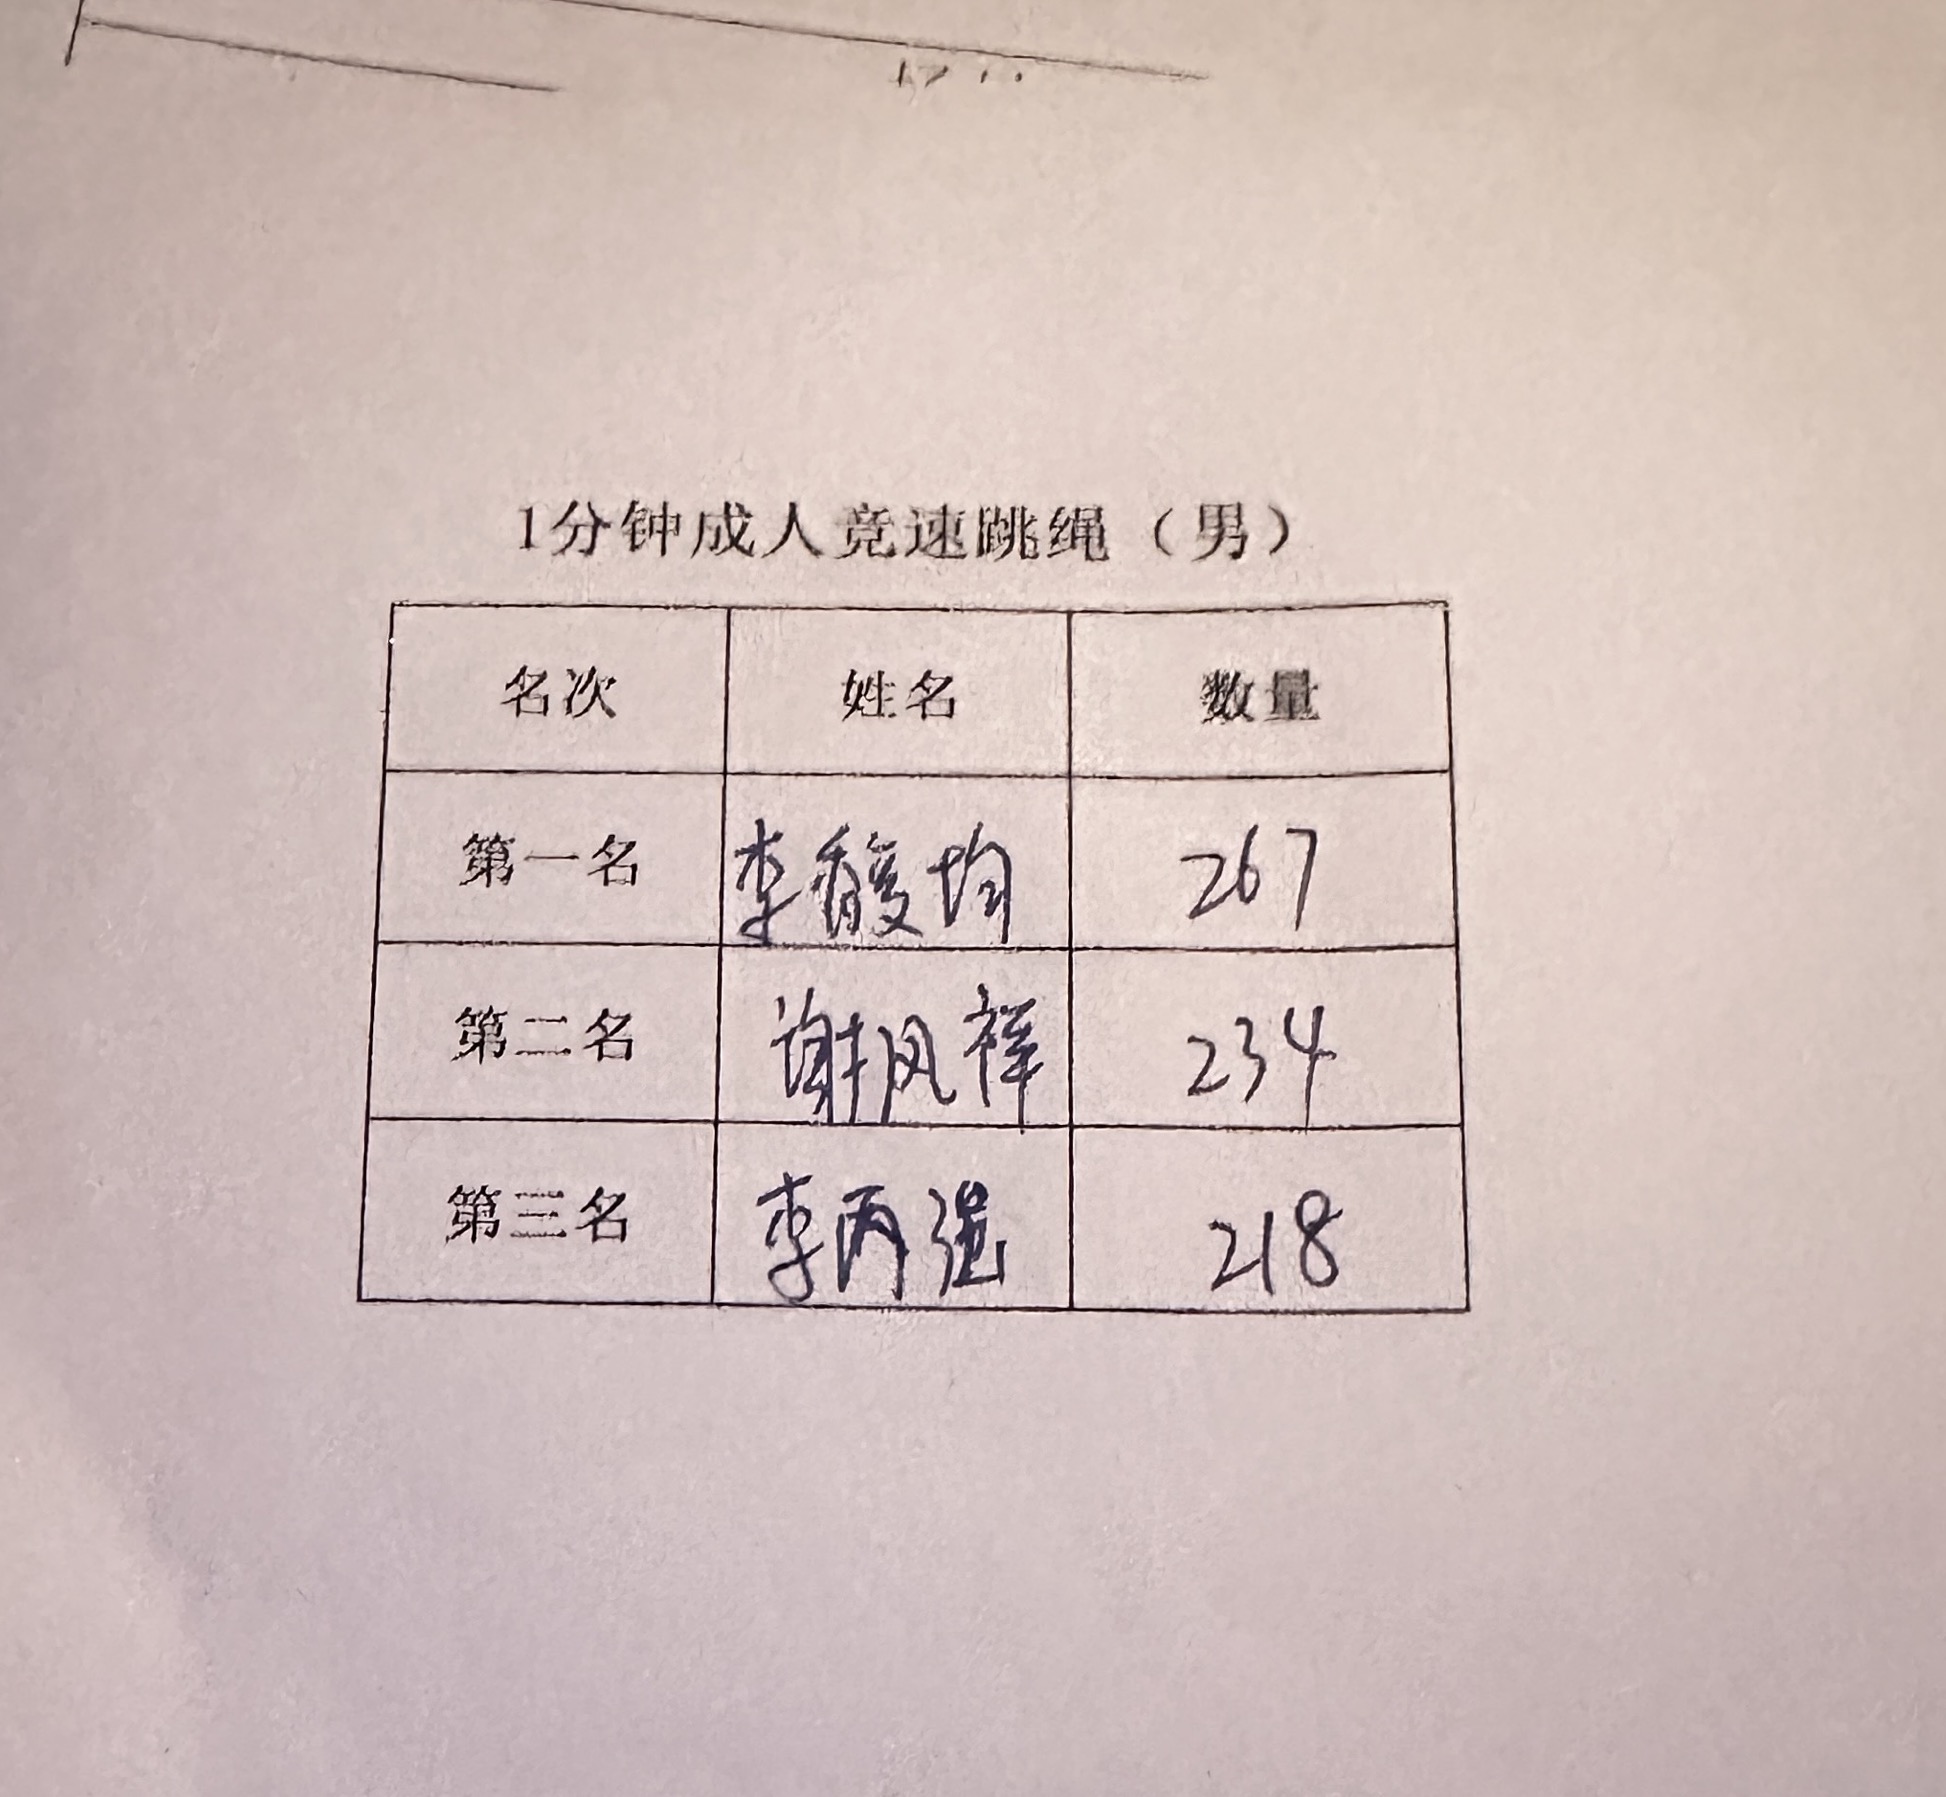 1分钟成人竞速跳绳（男）
名次 姓名 数量
第一名 李馥均 267
第二名 谢凤祥 234
第三名 李丙强 218